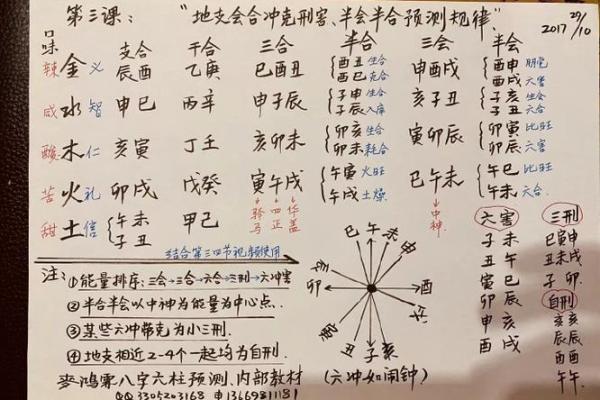 第三课: "地支会合冲克刑害、半会半合预测规律"。 2017 29/10
口味 支合 干合 三合 半合 三会 半会
辣 金 义 辰酉 乙庚 巳酉丑 酉丑 生合 申酉戌 酉申 朋党
酉巳 克合 酉戌 六害
咸 水 智 申巳 丙辛 申子辰 子申 生合 亥子丑 子亥 生会
子辰 入库 子丑 六合
酸 木 仁 亥寅 丁壬 亥卯未 卯亥 生合 寅卯辰 卯寅 比旺
卯未 耗合 卯辰 六害
苦 火 礼 卯戌 戊癸 寅午戌 午寅 火旺 巳午未 午巳 比旺
午戌 土燥 午未 六合
甜 土 信 午未 甲己 驿马 四正 华盖 中神
子丑
结合第三四节视频使用
六害 三刑
子未 巳寅申
丑午 丑未戌
寅巳 子卯
卯辰 自刑
申亥 亥亥
酉戌 辰辰
酉酉
午午
注: ①能量排序: 三会→三合→六合→三刑→六冲害
②半合半会以中神为能量为中心点.
③某些六冲带克为小三刑.
④地支相近2-4个一起均为自刑.
巳 午 未 申
酉
戌
亥 子 丑
寅
卯
辰
(六冲如闹钟)
麥鸿霖八字六柱预测、内部教材
QQ 3305203168 电13669811181